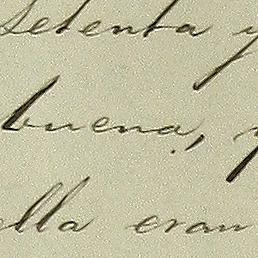 setenta y
buena, y
ella eran